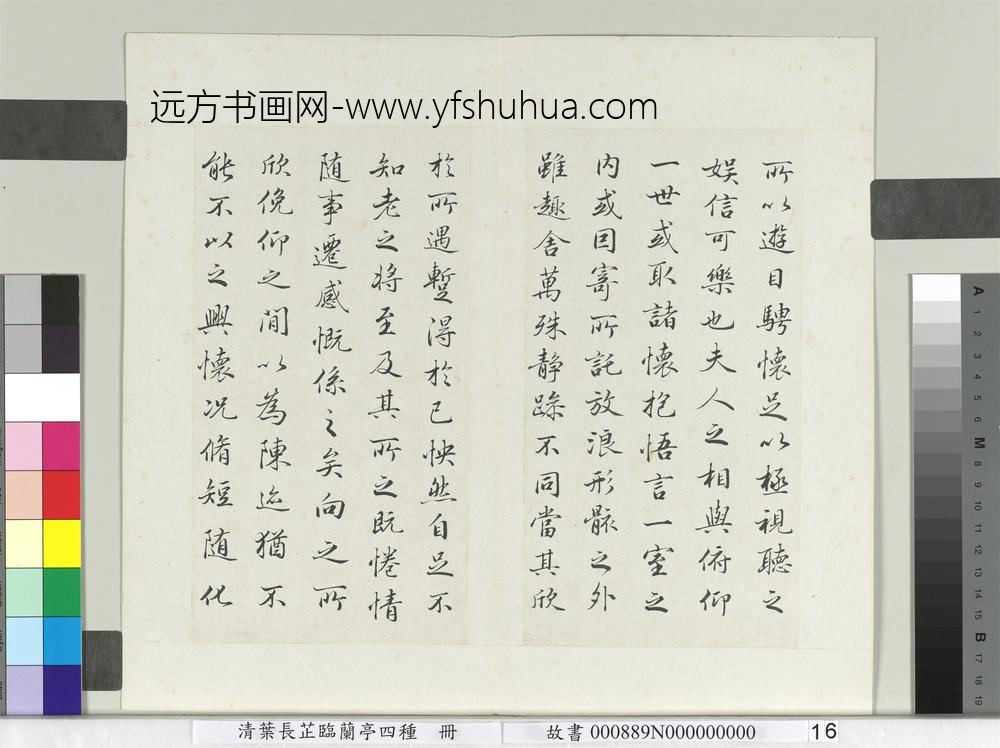 远方书画网-www.yfshuhua.com
所以遊目騁懷足以極視聽之
娱信可樂也夫人之相與俯仰
一世或取諸懷抱悟言一室之
内或因寄所託放浪形骸之外
雖趣舍萬殊静躁不同當其欣
於所遇蹔得於己怏然自足不
知老之将至及其所之既惓情
随事遷感慨係之矣向之所
欣俛仰之間以為陳迹猶不
能不以之興懷况脩短随化
A 1 2 3 4 5 6 M 8 9 10 11 12 13 14 15 B 17 18 19
清葉長芷臨蘭亭四種 冊
故書 000889N000000000
16